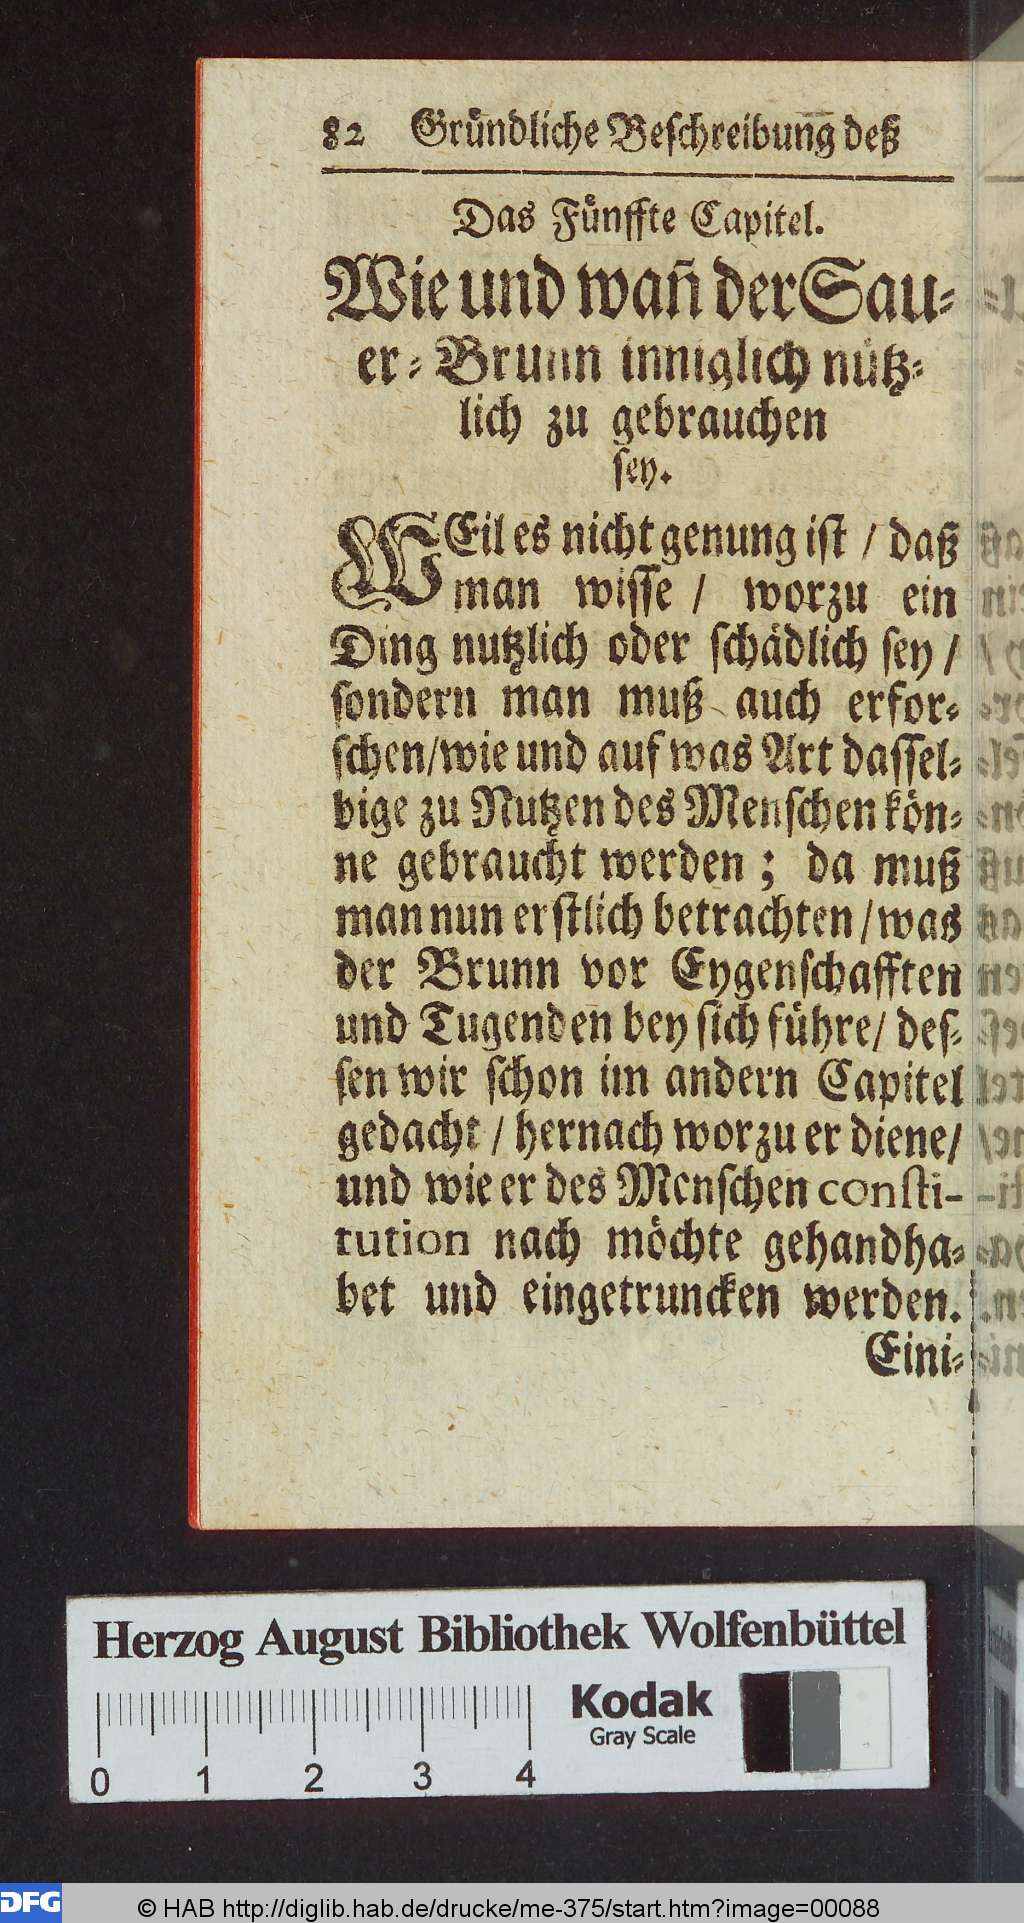 82 Gründliche Beschreibung deß
Das Fünffte Capitel.
Wie und wañ der Sau-
er-Brunn inniglich nütz-
lich zu gebrauchen
sey.
WEil es nicht genung ist / daß
man wisse / worzu ein
Ding nutzlich oder schädlich sey /
sondern man muß auch erfor-
schen/wie und auf was Art dassel-
bige zu Nutzen des Menschen kön-
ne gebraucht werden ; da muß
man nun erstlich betrachten / was
der Brunn vor Eygenschafften
und Tugenden bey sich führe/ des-
sen wir schon im andern Capitel
gedacht / hernach worzu er diene/
und wie er des Menschen consti-
tution nach möchte gehandha-
bet und eingetruncken werden.
Eini-
Herzog August Bibliothek Wolfenbüttel
Kodak
Gray Scale
0 1 2 3 4
DFG © HAB http://diglib.hab.de/drucke/me-375/start.htm?image=00088